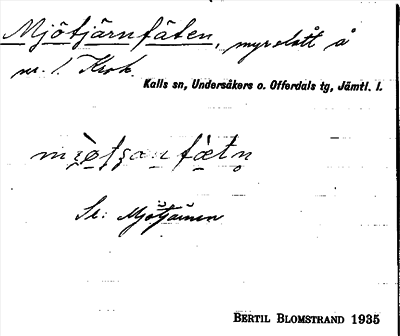 Mjötjärnfäten, myrslått å
nr. 1. Krok.
Kalls sn, Undersåkers o. Offerdals tg, Jämtl. l.
Se: Mjötjärnen
BERTIL BLOMSTRAND 1935